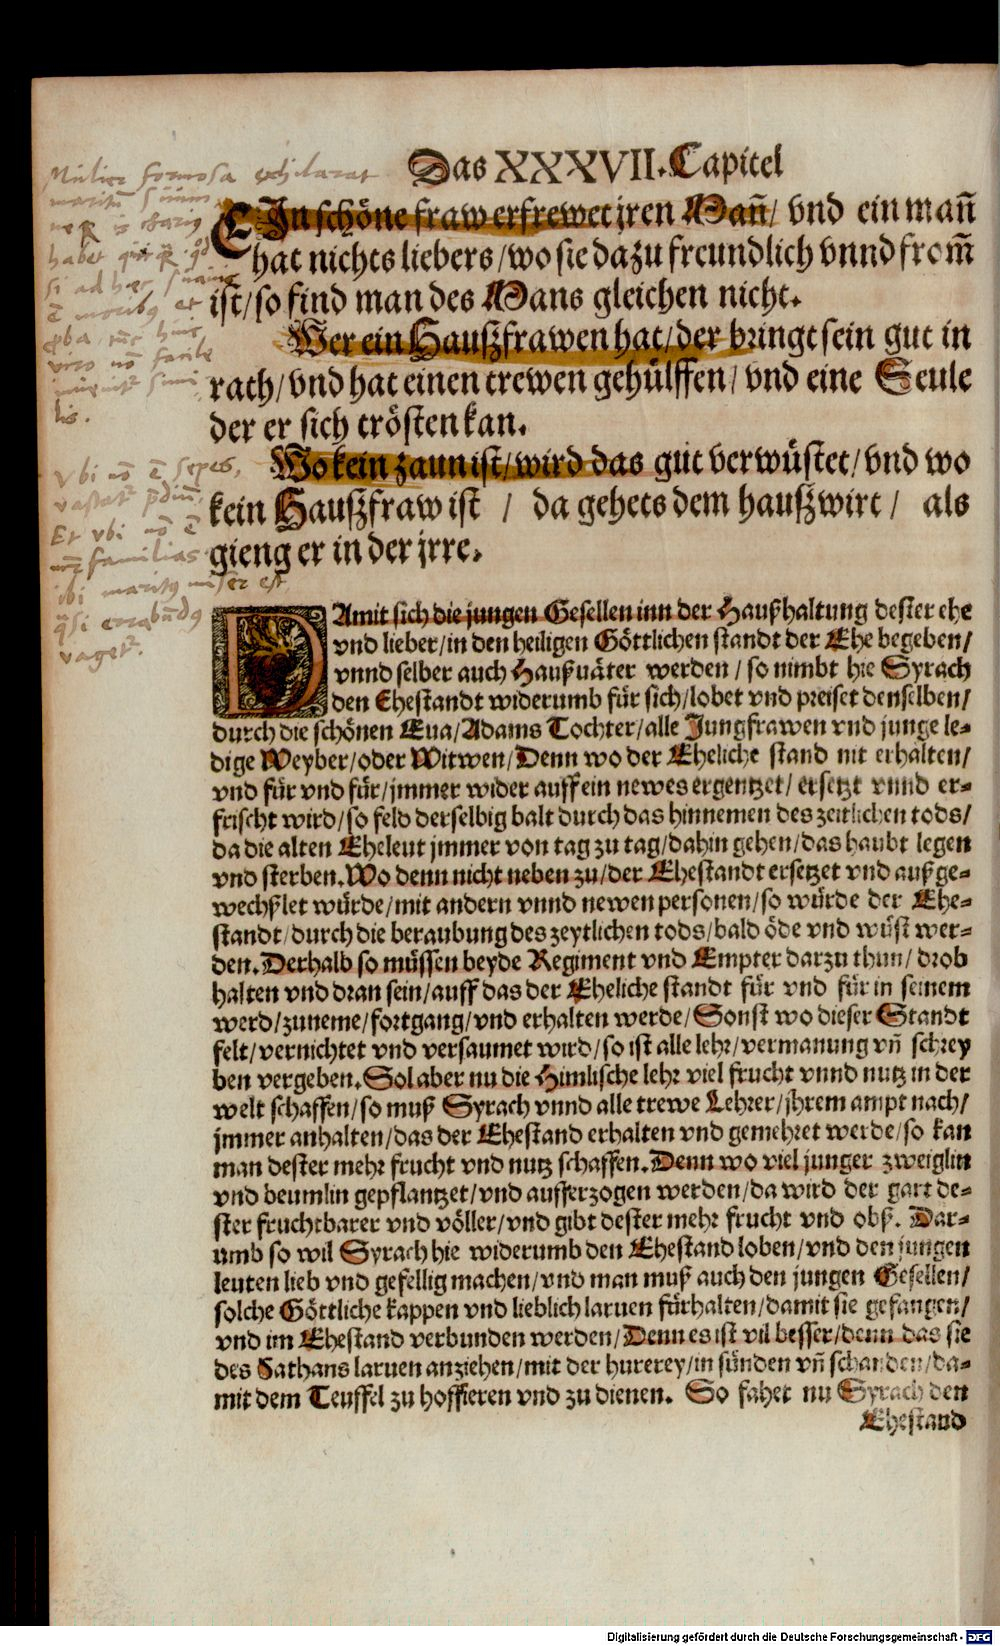 Das XXXVII. Capitel
EIn schöne fraw erfrewet jren Mañ/ vnd ein mañ
hat nichts liebers/ wo sie dazu freundlich vnnd from̃
ist/ so find man des Mans gleichen nicht.
Wer ein Haußfrawen hat/ der bringt sein gut in
rath/ vnd hat einen trewen gehülffen/ vnd eine Seule
der er sich trösten kan.
Wo kein zaun ist/ wird das gut verwüstet/ vnd wo
kein Haußfraw ist / da gehets dem haußwirt/ als
gieng er in der jrre.
Mulier formosa exhilarat
maritū suum
habet
si ad hæc suauis
ē moribꝰ et
viro nō facile
lis.
Vbi nō ē sepes,
Et vbi nō ē
familias
ibi maritꝰ miser est
qͣsi errabūdꝰ
DAmit sich die jungen Gesellen inn der Haußhaltung dester ehe
vnd lieber/ in den heiligen Göttlichen standt der Ehe begeben/
vnnd selber auch Haußuäter werden/ so nimbt hie Syrach
den Ehestandt widerumb für sich/ lobet vnd preiset denselben/
durch die schönen Eua/ Adams Tochter/ alle Jungfrawen vnd junge le-
dige Weyber/ oder Witwen/ Denn wo der Eheliche stand nit erhalten/
vnd für vnd für/ jmmer wider auff ein newes ergentzet/ ersetzt vnnd er-
frischt wird/ so feld derselbig balt durch das hinnemen des zeitlichen tods/
da die alten Eheleut jmmer von tag zu tag/ dahin gehen/ das haubt legen
vnd sterben. Wo denn nicht neben zu/ der Ehestandt ersetzet vnd außge-
wechßlet würde/ mit andern vnnd newen personen/ so würde der Ehe-
standt/ durch die beraubung des zeytlichen tods/ bald öde vnd wüst wer-
den. Derhalb so müssen beyde Regiment vnd Empter darzu thun/ drob
halten vnd dran sein/ auff das der Eheliche standt für vnd für in seinem
werd/ zuneme/ fortgang/ vnd erhalten werde/ Sonst wo dieser Standt
felt/ vernichtet vnd versaumet wird/ so ist alle lehr/ vermanung vñ schrey
ben vergeben. Sol aber nu die Himlische lehr viel frucht vnnd nutz in der
welt schaffen/ so muß Syrach vnnd alle trewe Lehrer/ jhrem ampt nach/
jmmer anhalten/ das der Ehestand erhalten vnd gemehret werde/ so kan
man dester mehr frucht vnd nutz schaffen. Denn wo viel junger zweiglin
vnd beumlin gepflantzet/ vnd aufferzogen werden/ da wird der gart de-
ster fruchtbarer vnd völler/ vnd gibt dester mehr frucht vnd obß. Dar-
umb so wil Syrach hie widerumb den Ehestand loben/ vnd den jungen
leuten lieb vnd gefellig machen/ vnd man muß auch den jungen Gesellen/
solche Göttliche kappen vnd lieblich laruen fürhalten/ damit sie gefangen/
vnd im Ehestand verbunden werden/ Denn es ist vil besser/ denn das sie
des Sathans laruen anziehen/ mit der hurerey/ in sünden vñ schanden/ da-
mit dem Teuffel zu hoffieren vnd zu dienen. So fahet nu Syrach den
Ehestand
Digitalisierung gefördert durch die Deutsche Forschungsgemeinschaft - DFG